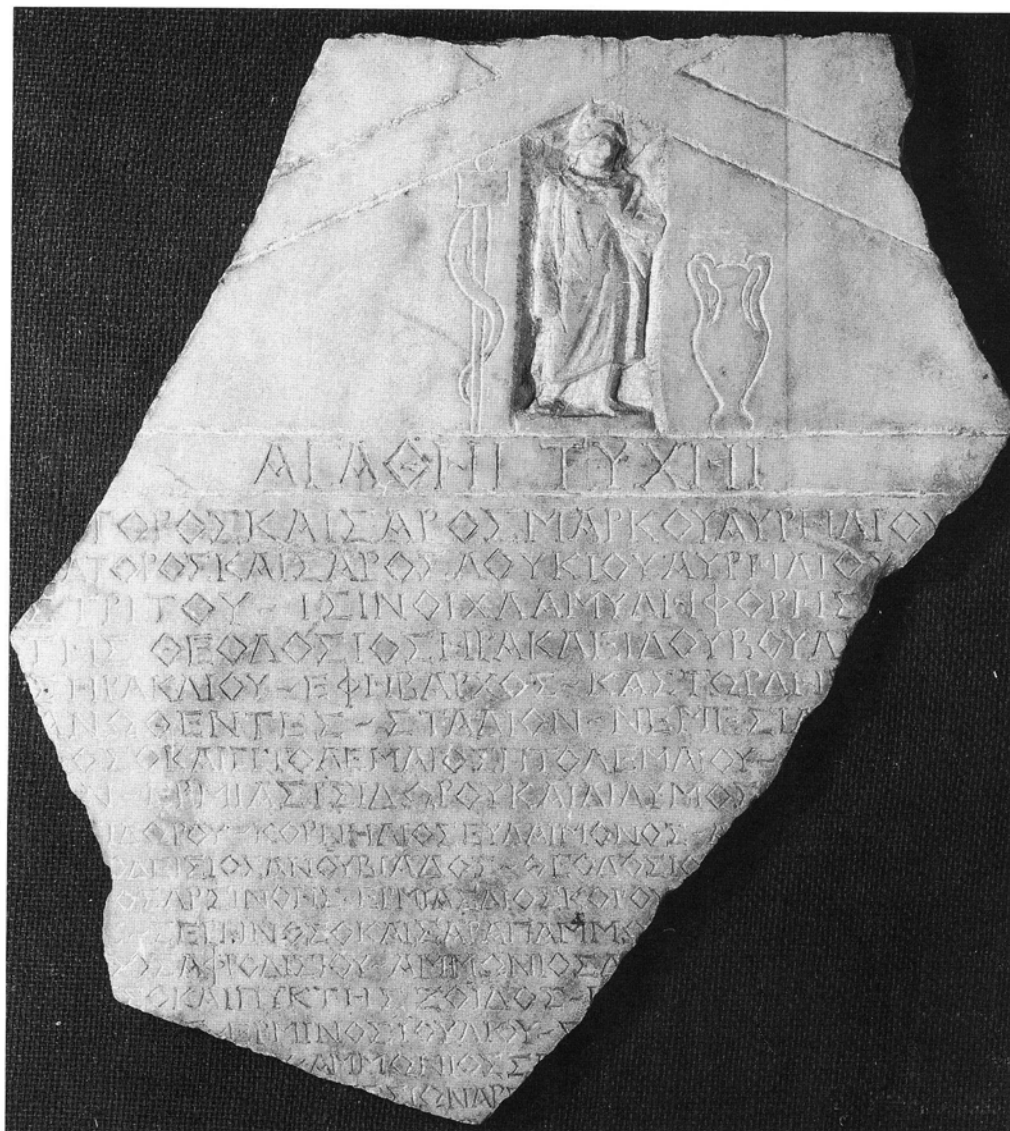 ΑΓΑΘΗΙ ΤΥΧΗΙ
ΤΟΡΟΣ ΚΑΙΣΑΡΟΣ ΜΑΡΚΟΥ ΑΥΡΗΛΙΟΥ
ΑΤΟΡΟΣ ΚΑΙΣΑΡΟΣ ΛΟΥΚΙΟΥ ΑΥΡΗΛΙΟΥ
ΤΡΙΤΟΥ - ΙΣΙΝ ΟΙ ΧΛΑΜΥΔΗΦΟΡΗΣ
ΤΗΣ ΘΕΟΔΟΣΙΟΣ ΗΡΑΚΛΕΙΔΟΥ ΒΟΥΛ
Σ ΗΡΑΚΛΙΟΥ - ΕΦΗΒΑΡΧΟΣ - ΚΑΣΤΩΡ ΔΗ
ΑΝΩΘΕΝΤΕΣ - ΣΤΑΔΙΟΝ - ΝΕΜΕΣΙ
ΟΣ Ο ΚΑΙ ΠΤΟΛΕΜΑΙΟΣ ΠΤΟΛΕΜΑΙΟΥ -
Ν - ΕΡΜΙΑΣ ΙΣΙΔΩΡΟΥ ΚΑΙ ΔΙΔΥΜΟΣ
ΙΔΩΡΟΥ - ΚΟΡΝΗΛΙΟΣ ΕΥΔΑΙΜΟΝΟΣ
ΟΔΙΣΙΟΣ ΑΝΟΥΒΙΑΔΟΣ - ΘΕΟΔΟΣΙΟ
ΟΣ ΑΡΣΙΝΟΗΣ - ΕΡΜΙΑΣ ΔΙΟΣΚΟΡΟΥ
ΣΕΡΗΝΟΣ Ο ΚΑΙ ΣΑΡΑΠΑΜΜΩ
ΟΣ ΑΦΡΟΔΙΣΙΟΥ - ΑΜΜΩΝΙΟΣ Δ
Ο ΚΑΙ ΠΥΚΤΗΣ ΖΩΙΔΟΣ -
ΕΡΜΙΝΟΣ ΙΟΥΛΙΟΥ -
- ΑΜΜΩΝΙΟΣ Σ